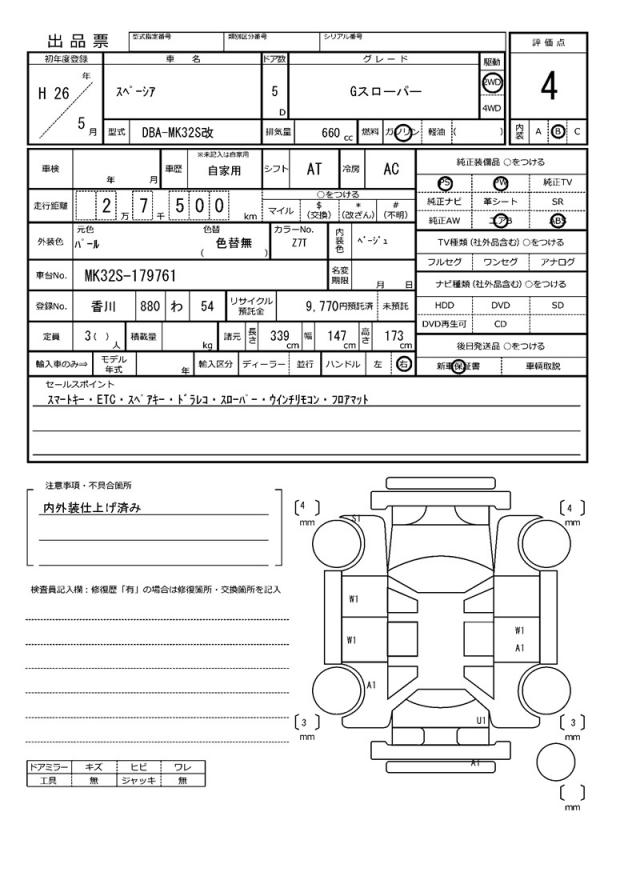 出品票 型式指定番号 類別区分番号 シリアル番号
評価点
4
内装 A B C
初年度登録 車名 ドア数 グレード 駆動
H 26 年 5 月 スペーシア 5 D Gスローパー 2WD 4WD
型式 DBA-MK32S改 排気量 660 cc 燃料 ガソリン 軽油 ( )
車検 年 月 車歴 ※未記入は自家用 自家用 シフト AT 冷房 AC
走行距離 2 万 7 千 5 0 0 km ○をつける マイル $ (交換) * (改ざん) # (不明)
外装色 元色 パール 色替 ( 色替無 ) カラーNo. Z7T 内装色 ベージュ
車台No. MK32S-179761 名変期限 月 日
登録No. 香川 880 わ 54 リサイクル預託金 9,770円預託済 未預託
定員 3 ( ) 人 積載量 kg 諸元 長さ 339 cm 幅 147 cm 高さ 173 cm
輸入車のみ⇒ モデル年式 年 輸入区分 ディーラー 並行 ハンドル 左 右
純正装備品 ○をつける
PS PW 純正TV
純正ナビ 革シート SR
純正AW エアB ABS
TV種類 (社外品含む) ○をつける
フルセグ ワンセグ アナログ
ナビ種類 (社外品含む) ○をつける
HDD DVD SD
DVD再生可 CD
後日発送品 ○をつける
新車保証書 車輌取説
セールスポイント
スマートキー・ETC・スペアキー・ドラレコ・スローパー・ウインチリモコン・フロアマット
注意事項・不具合箇所
内外装仕上げ済み
検査員記入欄：修復歴「有」の場合は修復箇所・交換箇所を記入
ドアミラー キズ ヒビ ワレ
工具 無 ジャッキ 無
[ 4 ] mm
[ 4 ] mm
S1
W1
W1
W1
A1
A1
U1
[ 3 ] mm
[ 3 ] mm
A1
[ ] mm